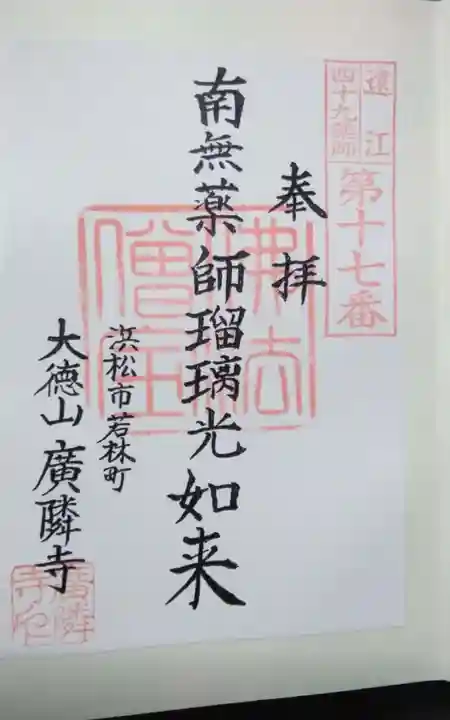 遠江
四十九薬師
第十七番
奉拝
佛法
僧宝
南無薬師瑠璃光如来
浜松市若林町
大徳山廣隣寺
廣隣
寺印